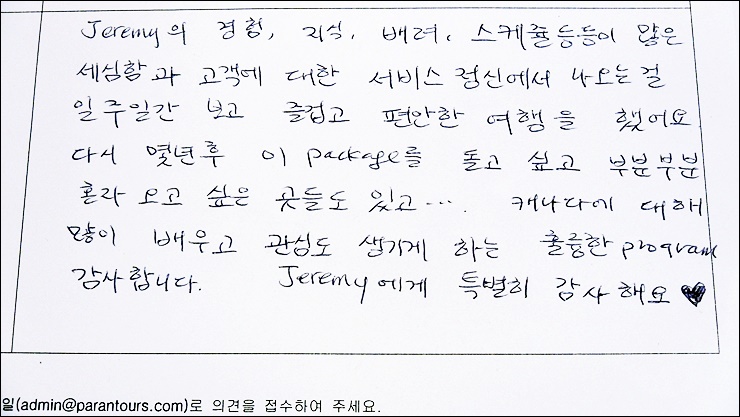 Jeremy의 경험, 지식, 배려, 스케쥴등등이 많은
세심함과 고객에 대한 서비스정신에서 나오는걸
일주일간 보고 즐겁고 편안한 여행을 했어요
다시 몇년후 이 package를 돌고 싶고 부분부분
혼자 오고 싶은 곳들도 있고.... 캐나다에 대해
많이 배우고 관심도 생기게 하는 훌륭한 program
감사합니다. Jeremy에게 특별히 감사해요 ♥
일(admin@parantours.com)로 의견을 접수하여 주세요.